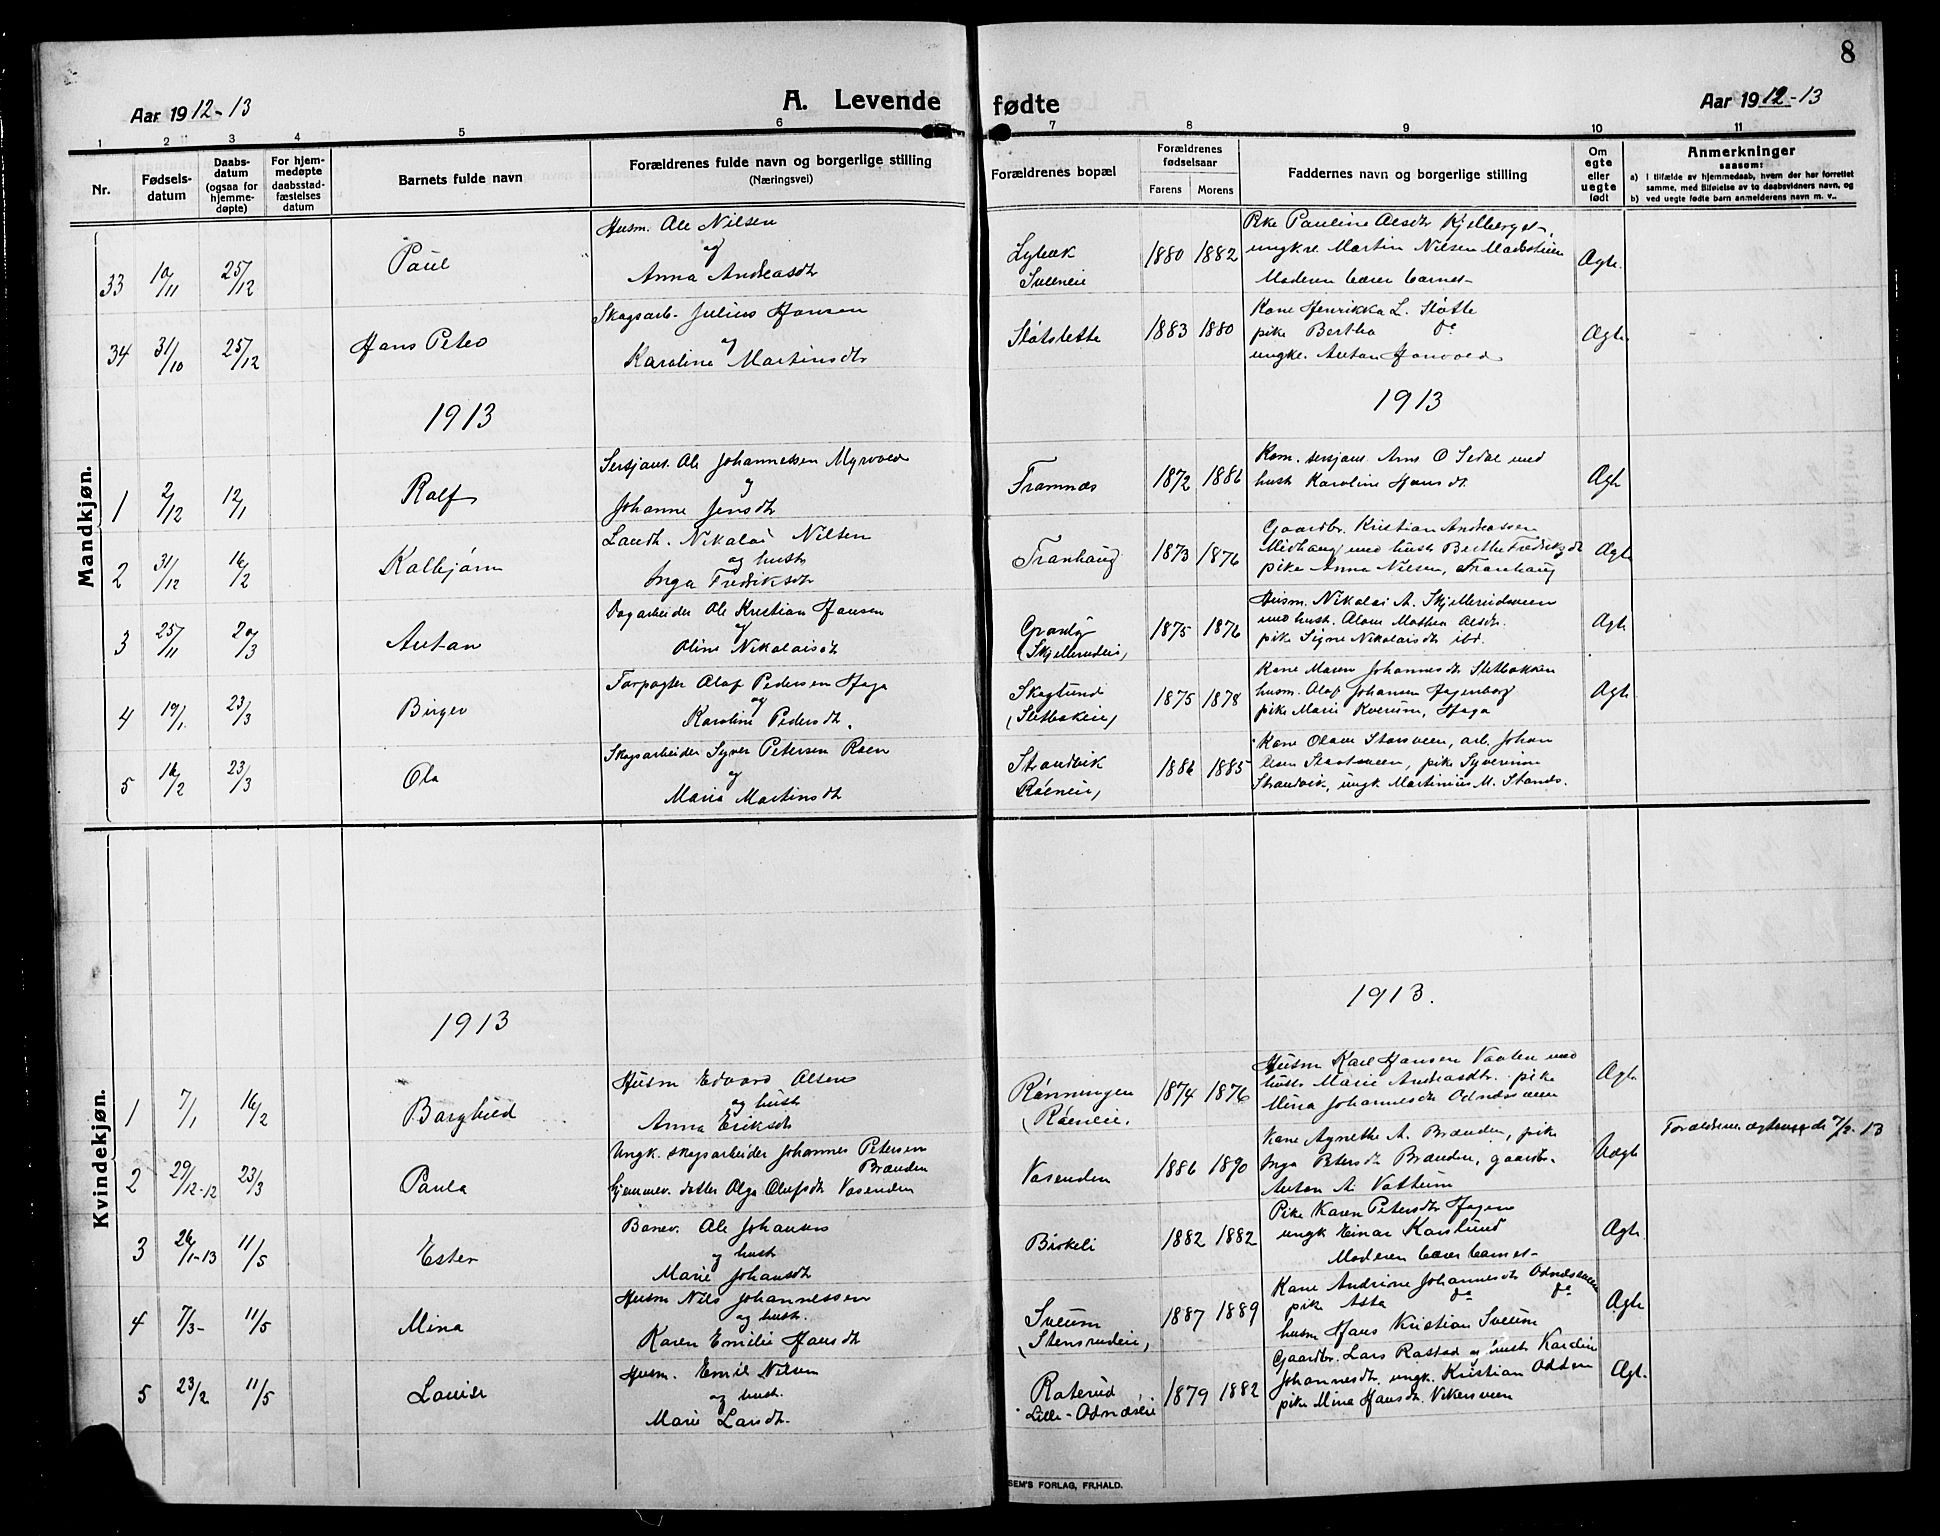 8
Aar 1912-13
A. Levende fødte
Aar 1912-13
1 2 3 4 5 6 7 8 9 10 11
Nr.
Fødsels-
datum
Daabs-
datum
(ogsaa for
hjemme-
døpte)
For hjem-
medøpte
daabsstad-
fæstelses
datum
Barnets fulde navn
Forældrenes fulde navn og borgerlige stilling
(Næringsvei)
Forældrenes bopæl
Forældrenes
fødselsaar
Farens Morens
Faddernes navn og borgerlige stilling
Om
egte
eller
uegte
født
Anmerkninger
saasom:
a) i tilfælde av hjemmedaab, hvem der har forrettet
samme, med tilføielse av to daabsvidners navn, og
b) ved uegte fødte barn anmelderens navn m. v..
Mandkjøn.
33 10/11 25/12 Paul
Husm. Ole Nilsen
og
Anna Andreasdt
Sveneie
1880 1882
Pike Pauline Olsdt Kjelberget,
ungkr. Martin Nilsen
Moderen bærer barnet-
Ægte
34 31/10 25/12 Hans Peter
Skogsarb. Julius Hansen
og
Karoline Martinsdt
Støtslette
1883 1880
Kone Henrikka L. Støtte
pike Bertha do
ungk. Anton
Ægte
1913
1913
1 2/12 12/1 Rolf
Sersjant. Ole Johannessen Myrvold
og
Johanne Jensdt
Framnæs
1872 1886
Kom. sersjant Arne O med
hust Karoline Hansdt
Ægte
2 31/12 16/2 Kolbjørn
Landh. Nikolai Nilsen
og hust
Inga Fredriksdt
Tranhaug
1873 1876
Gaardbr. Kristian Andreassen
Midhaug med hust Berthe Fredriksdt
pike Anna Nilsen, Tranhaug
Ægte
3 25/11 20/3 Anton
Dagarbeider Ole Kristian Hansen
og
Oline Nikolaisdt
Granly
(Skjellerudeie)
1875 1876
Husm. Nikolai A. Skjellerudsveen
med hust. Mathea Olsdt.
pike Signe Nikolaisdt ibd.
Ægte
4 19/1 23/3 Birger
Forpagter Olaf Pedersen Haga
og
Karoline Pedersdt.
Skoglund
(Sletbakeie)
1875 1878
Kone Maren Johannesdt Sletbakken
husm. Olaf Johansen Hagenborg
pike Marie Kverum, Haga
Ægte
5 16/2 23/3 Ola
Skogsarbeider Syver Petersen Roen
og
Maria Martinsdt
Strandvik
Røeneie,
1886 1885
Kone Storsveen, arb. Johan
pike Syverine
Strandvik, ungk Martinius M. Strands.
Kvindekjøn.
1913
1913.
1 7/1 16/2 Borghild
Husm Edvard Olsen
og hust
Anna Eriksdt
Rønningen
(Røeneie.
1874 1876
Husm Karl Hansen Vaaten med
hust Marie Andreasdt. pike
Mina Johannesdt Odnæsveen
Ægte
2 29/12-12 23/3 Paula
Ungk. skogsarbeider Johannes Petersen
Brænden
hjemmev. datter Olga Olufsdt Vasenden
Vasenden
1886 1890
Kone Agnethe A. Brænden, pike
Inga Petersdt Brænden, gaardbr.
Anton A. Vattum
Uægte
3 26/1-13 11/5 Ester
Banev. Ole Johansen
og hust
Marie Johansdt
Birkeli
1882 1882
Pike Karen Petersdt Hagen
ungk Einar Karlslund
Moderen bærer barnet-
Ægte
4 7/3- 11/5 Mina
Husm Nils Johannessen
og hust.
Karen Emilie Hansdt
Sveum
(Stensrudeie)
1887 1889
Kone Andrine Johannesdt Odnæsveen
pike Asta do do
husm Hans Kristian Sveum
Ægte
5 23/2 11/5 Louise
Husm. Emil Nilsen
og hust.
Marie Larsdt.
Roterud
Lille-Odnæseie
1879 1882
Gaardbr. Lars Rostad og hust Karoline
Johannesdt. ungk. Kristian Odden
pike Mina Hansdt. Vikersveen
Ægt.
SEM'S FORLAG, FR.HALD.